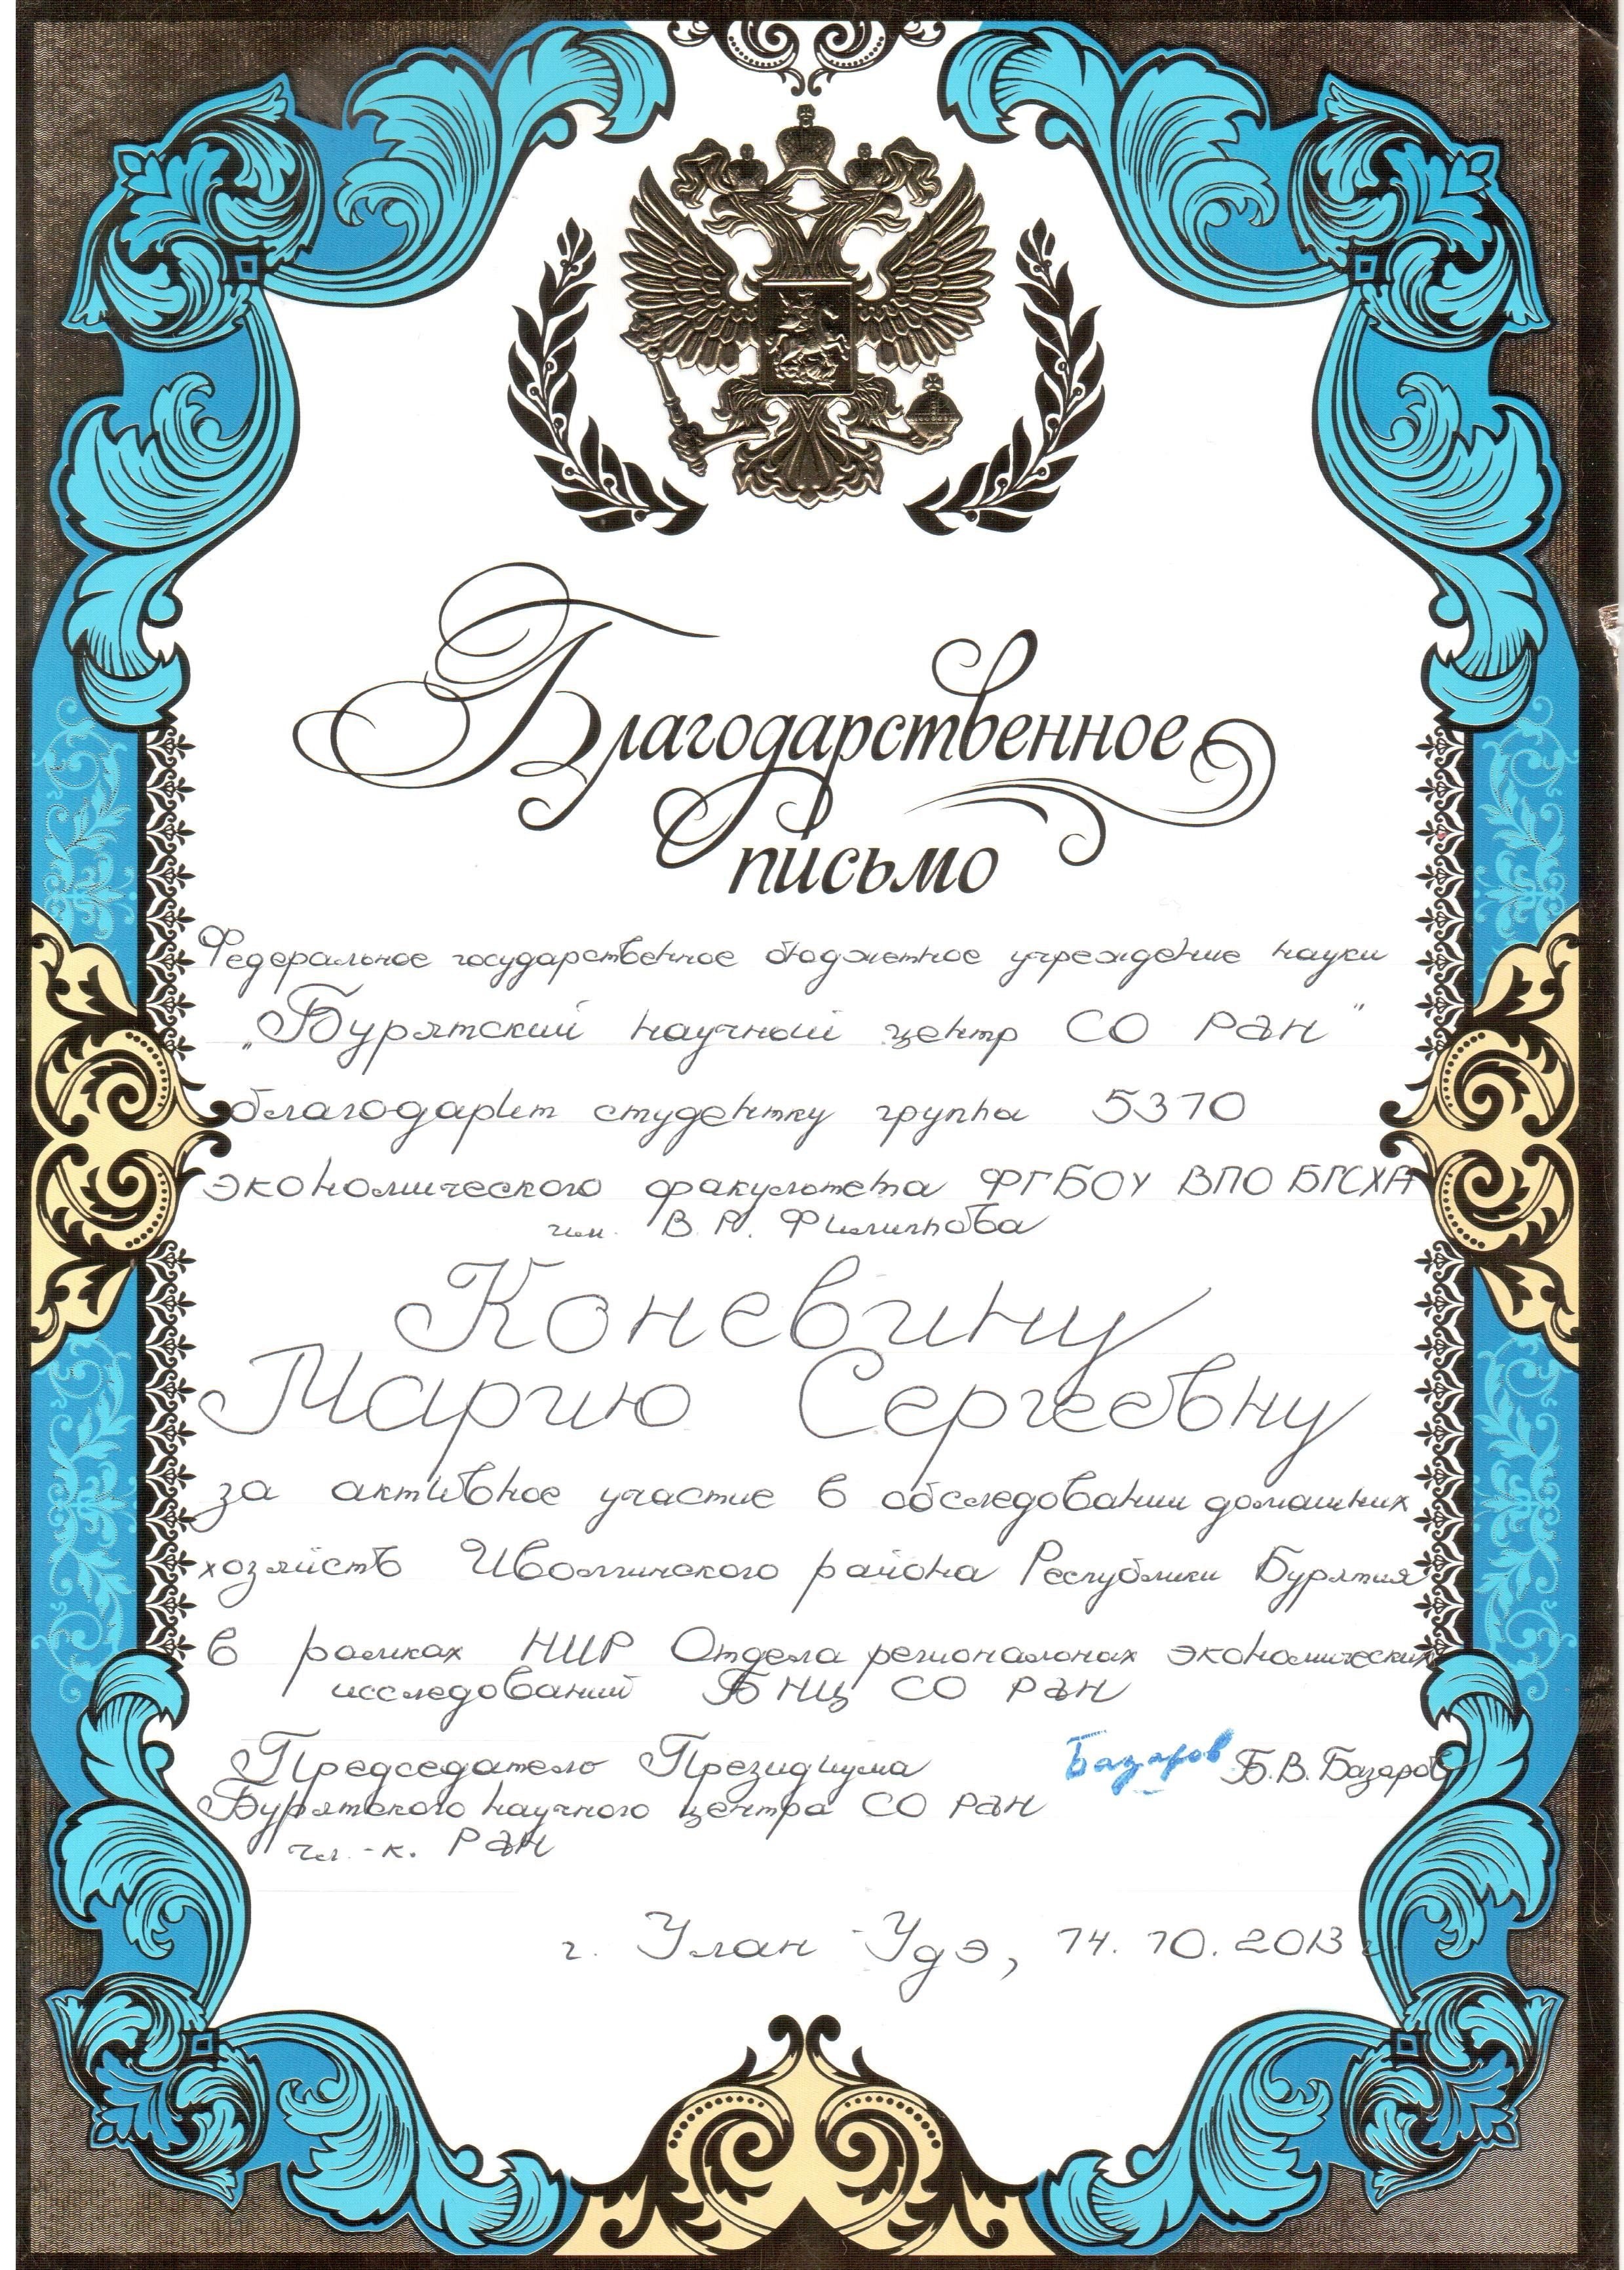 Благодарственное
письмо
Федеральное государственное бюджетное учреждение науки
„Бурятский научный центр СО РАН"
благодарит студентку группы 5310
экономического факультета ФГБОУ ВПО БГСХА
им. В. Р. Филиппова
Коневину
Марию Сергеевну
за активное участие в обследовании домашних
хозяйств Иволгинского района Республики Бурятия
в рамках НИР Отдела региональных экономических
исследований БНЦ СО РАН
Председатель Президиума Базаров Б.В. Базаров
Бурятского научного центра СО РАН
чл.-к. РАН
г. Улан-Удэ, 14.10.2013 г.